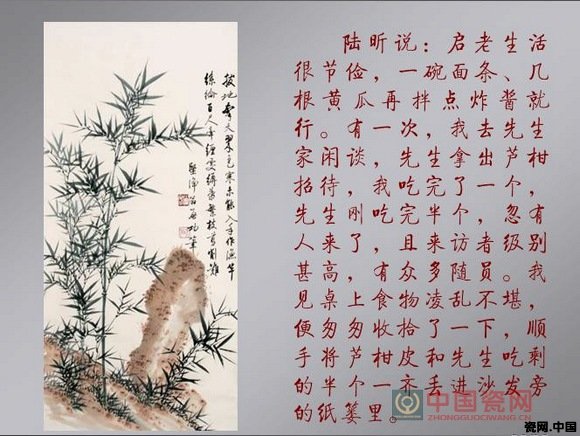 陆昕说：启老生活
很节俭，一碗面条、几
根黄瓜再拌点炸酱就
行。有一次，我去先生
家闲谈，先生拿出芦柑
招待，我吃完了一个，
先生刚吃完半个，忽有
人来了，且来访者级别
甚高，有众多随员。我
见桌上食物凌乱不堪，
便匆匆收拾了一下，顺
手将芦柑皮和先生吃剩
的半个一齐丢进沙发旁
的纸篓里。
拔地天翠色寒未能入手作漁竿
中国瓷网
ZHONGGUOCIWANG.COM
瓷网.中国